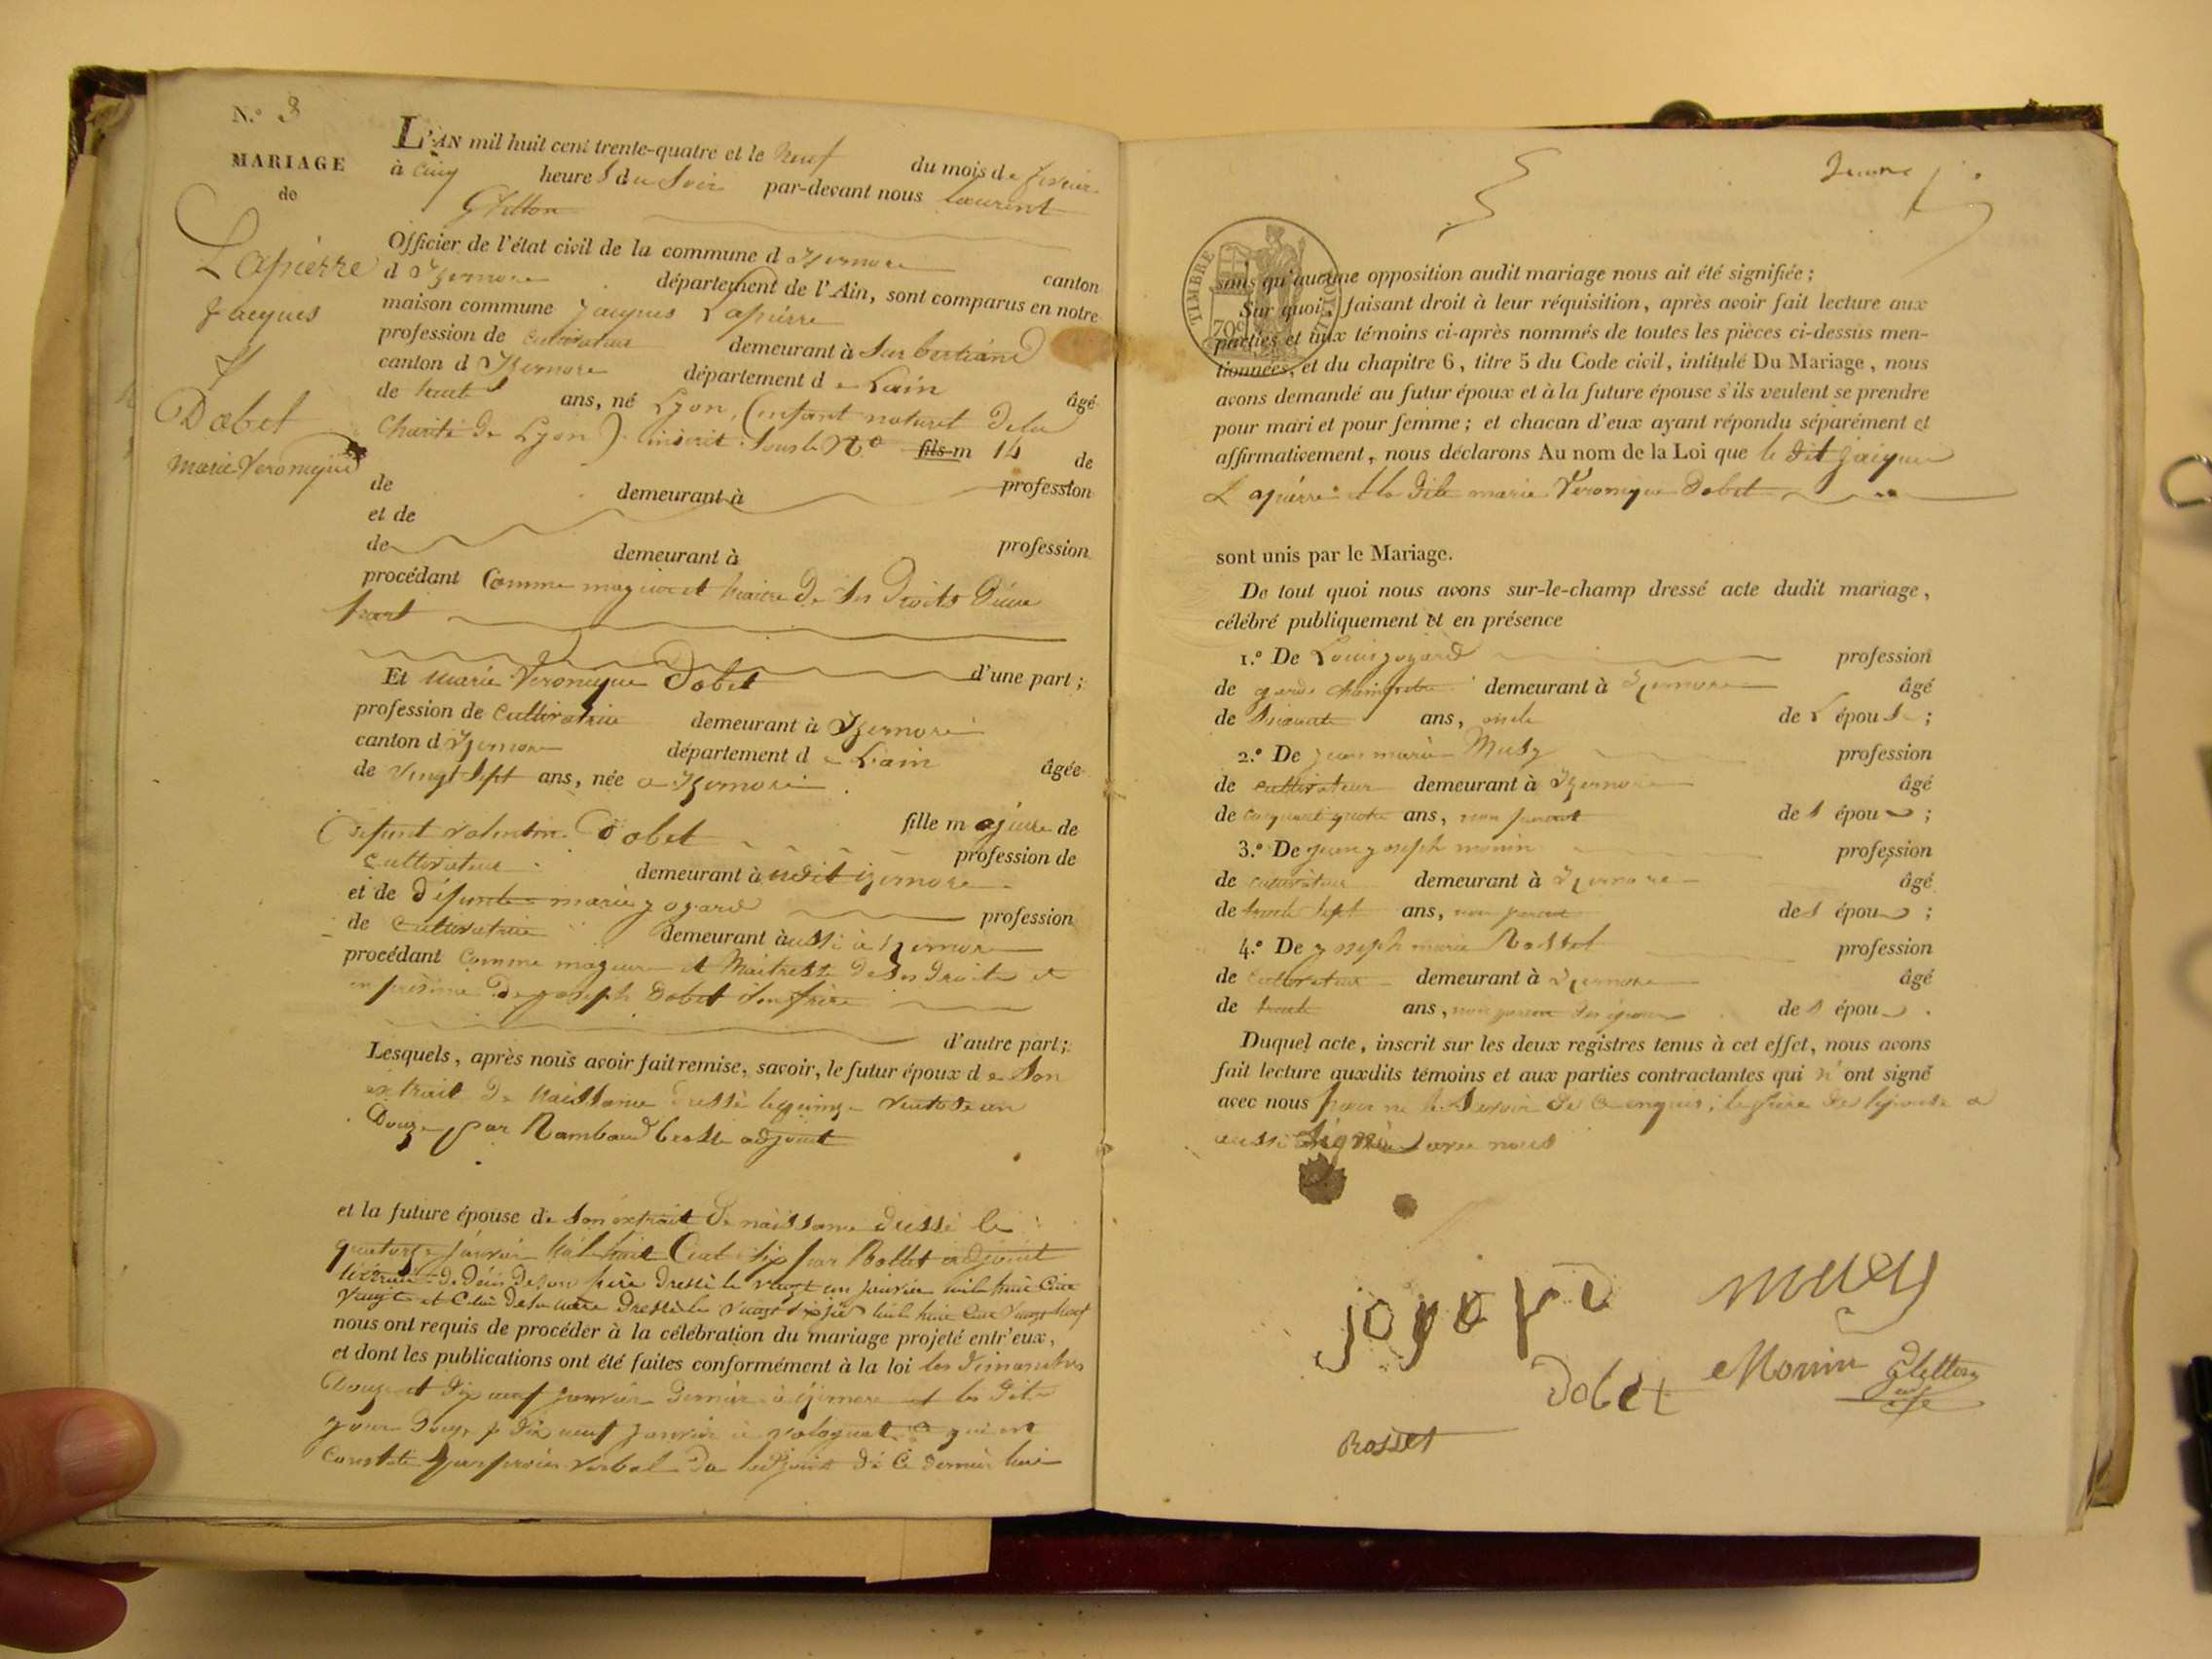 N.º 8
MARIAGE
de
Lapierre
Jacques
&
Dobet
Marie Veronique
L'AN mil huit cent trente-quatre et le neuf du mois de fevrier
à cinq heures du soir par-devant nous Laurent
Gletton
Officier de l'état civil de la commune d Izernore canton
d Izernore département de l'Ain, sont comparus en notre
maison commune Jacques Lapierre
profession de cultivateur demeurant à
canton d Izernore département de Lain âgé
de trente ans, né Lyon, (enfant naturel dela
Charité de Lyon) inscrit sous le N.º fils m 14 de
de demeurant à profession
et de
de demeurant à profession
procédant Comme mageur et maitre de ses droits d'une
part
d'une part;
Et marie Veronique Dobet
profession de cultivatrice demeurant à Izernore
canton d Izernore département de Lain âgée
de vingt sept ans, née a Izernore
fille majeure de
défunt valentin Dobet profession de
cultivateur demeurant à udit izernore
et de défunte marie joyard profession
de cultivatrice demeurant àussi à izernore
procédant Comme mageure et Maitresse de ses droits et
en présence de joseph Dobet son frère
d'autre part;
Lesquels, après nous avoir fait remise, savoir, le futur époux de son
extrait de naissance dressé le quinze ventose an
Douze par Rambaud brosse adjoint
et la future épouse de son extrait de naissance dressé le
quatorze janvier mil huit Cent six par Rollet adjoint
de décès de son père dressé le vingt un janvier mil huit Cent
vingt et celui de sa mère dressé le mil huit Cent vingt
nous ont requis de procéder à la célébration du mariage projeté entr'eux,
et dont les publications ont été faites conformément à la loi les dimanches
douze et dix neuf janvier dernier à izernore et les dits
jour douze & dix neuf janvier à volognat ce qui est
constaté par procès verbal de ladjoint de ce dernier lieu
sans qu'aucune opposition audit mariage nous ait été signifiée;
TIMBRE ROYAL
70c
Sur quoi, faisant droit à leur réquisition, après avoir fait lecture aux
parties et aux témoins ci-après nommés de toutes les pièces ci-dessus men-
tionnées, et du chapitre 6, titre 5 du Code civil, intitulé Du Mariage, nous
avons demandé au futur époux et à la future épouse s'ils veulent se prendre
pour mari et pour femme; et chacun d'eux ayant répondu séparément et
affirmativement, nous déclarons Au nom de la Loi que le dit jacques
Lapierre et la dite marie Veronique Dobet
sont unis par le Mariage.
De tout quoi nous avons sur-le-champ dressé acte dudit mariage,
célébré publiquement et en présence
1.º De Louis joyard profession
de garde champetre demeurant à Izernore âgé
de soixante ans, oncle de L épouse;
2.º De jean marie Musy profession
de cultivateur demeurant à Izernore âgé
de cinquante quatre ans, non parent des époux;
3.º De jean joseph monin profession
de cultivateur demeurant à Izernore âgé
de trente sept ans, non parent des époux;
4.º De joseph marie Rosset profession
de cultivateur demeurant à Izernore âgé
de trente ans, non parent des époux des époux.
Duquel acte, inscrit sur les deux registres tenus à cet effet, nous avons
fait lecture auxdits témoins et aux parties contractantes qui n'ont signé
avec nous pour ne le savoir de ce enquis; le frère de lépouse a
aussi signé avec nous
joyard
musy
Dobet
Monin
Gletton
Rosset